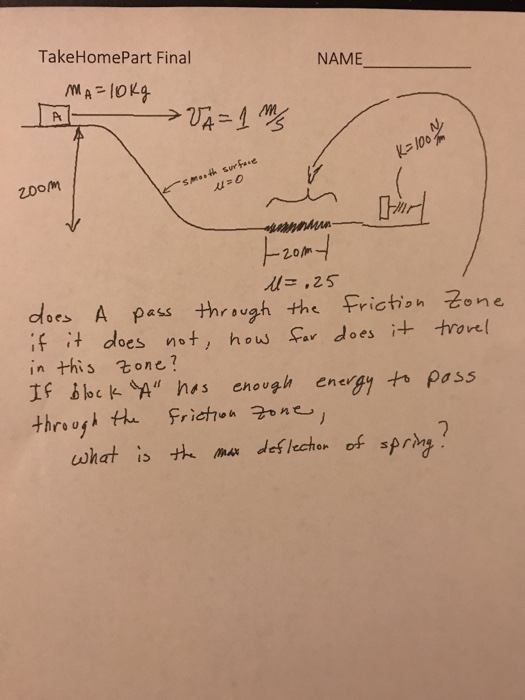 TakeHomePart Final NAME
mA = 10 Kg
A
vA = 1 m/s
K = 100 N/m
smooth surface
μ = 0
200m
20m
μ = .25
does A pass through the friction zone
if it does not, how far does it travel
in this zone?
If block "A" has enough energy to pass
through the friction zone,
what is the max deflection of spring?